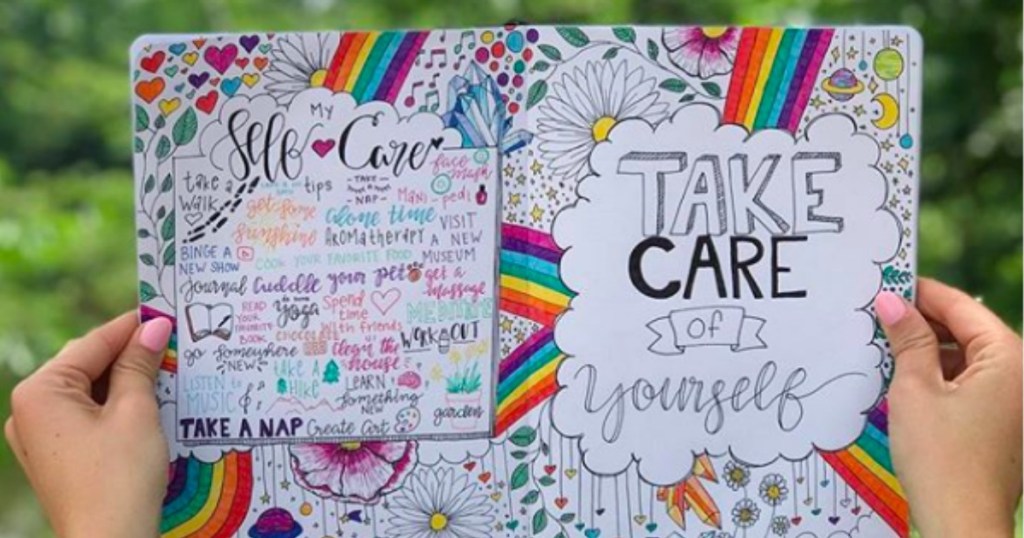 MY
Self Care
take a walk
tips
TAKE
NAP
face mask
get some sunshine
alone time
Mani-pedi
AROMAtherapy
VISIT A NEW MUSEUM
BINGE A NEW SHOW
COOK YOUR FAVORITE FOOD
Journal
Cuddle your pet
get a massage
READ YOUR FAVORITE BOOK
do some yoga
Spend time with friends
chocolate
WORK OUT
go somewhere "NEW"
clean the house
TAKE A HIKE
LEARN something NEW
LISTEN to MUSIC
garden
TAKE A NAP
Create Art
TAKE
CARE
Of
Yourself